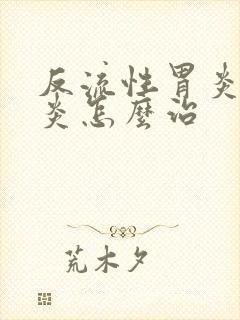 反流性胃炎
炎怎麼治
荒木夕